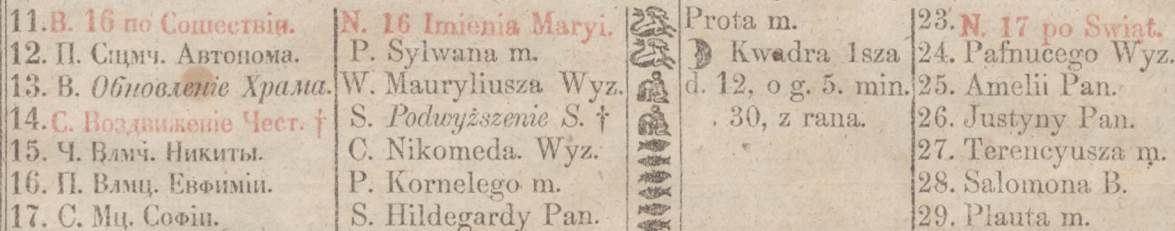 11. В. 16 по Сошествіи. N. 16 Imienia Maryi. Prota m. 23. N. 17 po Swiąt.
12. П. Сщмч. Автонома. P. Sylwana m. Kwadra 1sza 24. Pafnucego Wyz.
13. В. Обновленіе Храма. W. Mauryliusza Wyz. d. 12, o g. 5. min. 25. Amelii Pan.
14. С. Воздвиженіе Чест. † S. Podwyższenie S. † 30, z rana. 26. Justyny Pan.
15. Ч. Влмч. Никиты. C. Nikomeda. Wyz. 27. Terencyusza m.
16. П. Влмц. Евфиміи. P. Kornelego m. 28. Salomona B.
17. С. Мц. Софіи. S. Hildegardy Pan. 29. Plauta m.